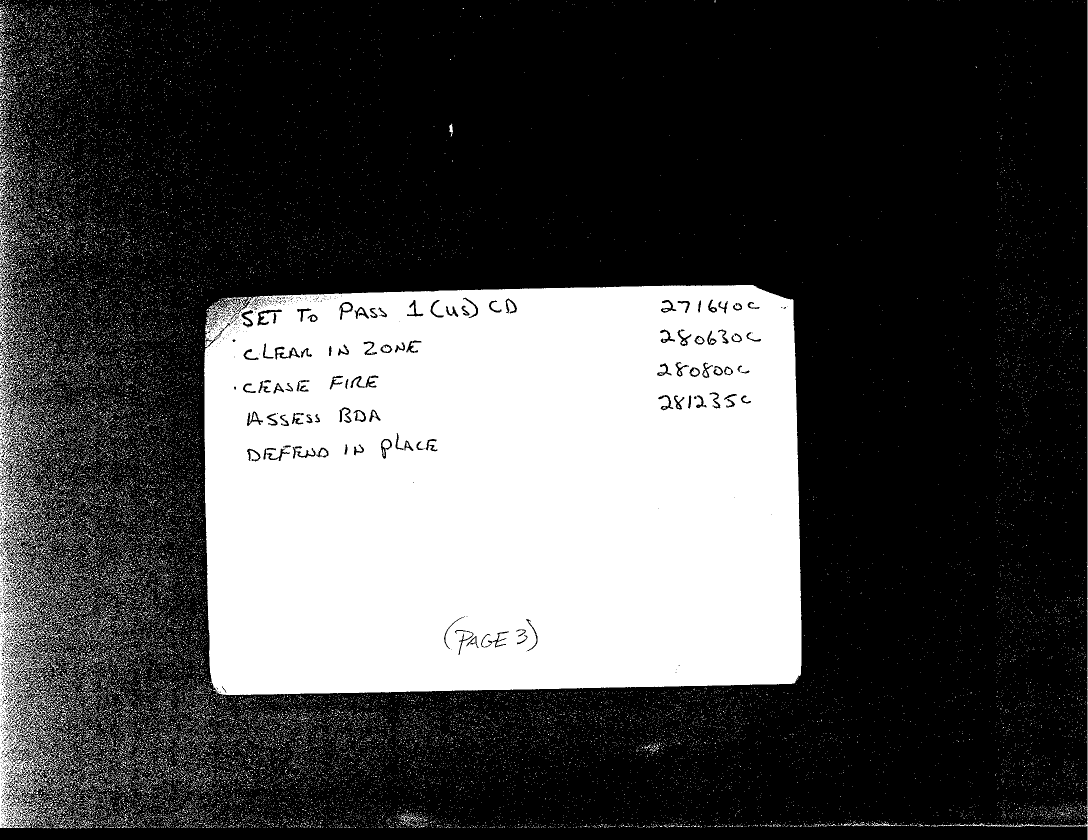 SET TO PASS 1 (US) CD 271640C
CLEAR IN ZONE 280630C
CEASE FIRE 280800C
ASSESS BDA 281235C
DEFEND IN PLACE
(PAGE 3)